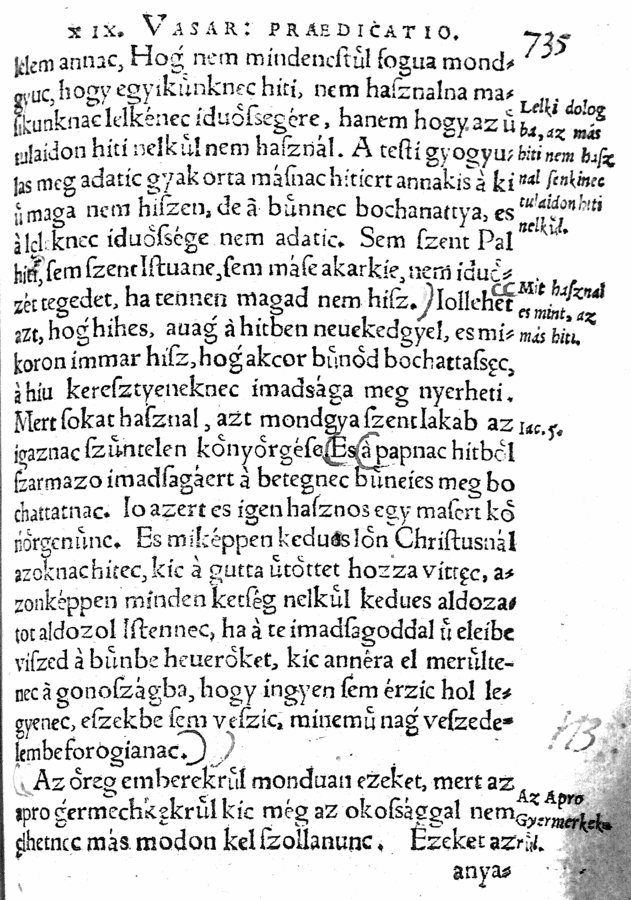 XIX. VASAR: PRAEDICATIO.
735
lelem annac, Hoǵ nem mindeneſtuͤl fogua mond⸗
gyuc, hogy egyikuͤnknec hiti, nem haſznalna ma⸗
ſikunknac lelkénec iduoͤſsegére, hanem hogy az uͤ
tulaidon hiti nelkuͤl nem haſznál. A teſti gyogyu⸗
las meg adatic gyakorta máſnac hitiert annakis à ki
uͤ maga nem hiſzen, de à buͤnnec bochanattya, es
à lelknec iduoͤſsége nem adatic. Sem ſzent Pal
hiti, ſem ſzent Iſtuane, ſem máſe akarkie, nem iduoͤ⸗
zét tegedet, ha tennen magad nem hiſz. Iollehet
azt, hoǵ hihes, auaǵ à hitben neuekedgyel, es mi⸗
koron immar hiſz, hoǵ akcor buͤnoͤd bochattaſsęc,
à hiu kereſztyeneknec imadsága meg nyerheti.
Mert ſokat haſznal, azt mondgya ſzent Iakab az
igaznac ſzuͤntelen koͤnyoͤrgéſe. Es à papnac hitboͤl
ſzarmazo imadſagáert à betegnec buͤneies meg bo
chattatnac. Io azert es igen haſznos egy maſert koͤ
noͤrgenuͤnc. Es miképpen kedues loͤn Chriſtusnál
azoknac hitec, kic à gutta uͤtoͤttet hozza vittęc, a⸗
zonképpen minden ketſég nelkuͤl kedues aldoza⸗
tot aldozol Iſtennec, ha à te imadſagoddal uͤ eleibe
viſzed à buͤnbe heueroͤket, kic annéra el meruͤlte⸗
nec à gonoſzágba, hogy ingyen ſem érzic hol le⸗
gyenec, eſzekbe ſem veſzic, minemuͤ naǵ veſzede⸗
lembe forogianac.
Az oͤreg emberekruͤl monduan ezeket, mert az
apro ǵermechkękruͤl kic még az okoſsággal nem
ęlhetnec más modon kel ſzollanunc. Ezeket az
anya⸗
Lelki dolog
ba, az más
hiti nem haſz
nal ſenkinec
tulaidon hiti
nelkuͤl.
Mit haſznal
es mint, az
más hiti.
Iac. 5.
Az Apro
Gyermerkek⸗
ruͤl.